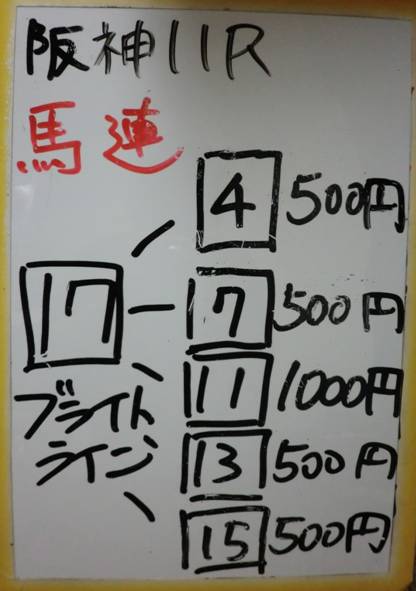 阪神11R
馬連
4 500円
17 7 500円
11 1000円
ブライト
ライン 13 500円
15 500円